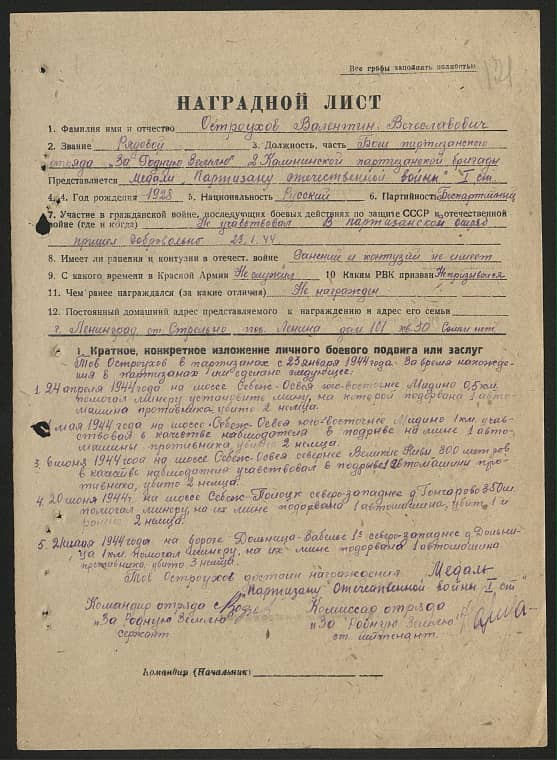 Все графы заполнять полностью
121
НАГРАДНОЙ ЛИСТ
1. Фамилия имя и отчество Остроухов Валентин Вячеславович
2. Звание Рядовой 3. Должность, часть Боец партизанского
отряда "За Родную Землю" 2 Калининской партизанской бригады
Представляется Медали "Партизану отечественной войны" I ст.
4. Год рождения 1928 5. Национальность Русский 6. Партийность Беспартийный
7. Участие в гражданской войне, последующих боевых действиях по защите СССР и отечественной
войне (где и когда) Не участвовал В партизанский отряд
пришел добровольно 23.1.44
8. Имеет ли ранения и контузии в отечест. войне Ранений и контузий не имеет
9. С какого времени в Красной Армии Не служил 10 Каким РВК призван Не призывался
11. Чем ранее награждался (за какие отличия) Не награжден
12. Постоянный домашний адрес представляемого к награждению и адрес его семьи
г. Ленинград, ст. Стрельно Ленина дом 101 кв 30 Семьи нет
1. Краткое, конкретное изложение личного боевого подвига или заслуг
Тов Остроухов в партизанах с 23 января 1944 года. За время нахожде-
ния в партизанах им сделано следующее:
1. 24 апреля 1944 года на шоссе Себеж-Освея юго-восточнее Мидино 0,5 км.
помогал минеру установить мину, на которой подорвана 1 авто-
машина противника, убито 2 немца.
мая 1944 года на шоссе Себеж-Освея юго-восточнее Мидино 1 км. учав-
ствовал в качестве наблюдателя в подрыве на мине 1 авто-
машины противника, убито 2 немца.
3. 6 июня 1944 года на шоссе Себеж-Освея севернее Великие 800 метров
в качестве наблюдателя учавствовал в подрыве автомашины про-
тивника, убито 2 немца.
4. 20 июня 1944 г. на шоссе Себеж-Полоцк северо-западнее д. Гончарово 350 м.
помогал минеру, на их мине подорвана 1 автомашина, убит 1 и
ранено 2 немца.
5. 1944 года на дороге северо-западнее д.
1 км. помогал минеру, на их мине подорвана 1 автомашина
противника, убито 3 немца.
Тов Остроухов достоин награждения Медаль
"Партизану Отечественной войны I ст"
Командир отряда
"За Родную Землю"
сержант
Комиссар отряда
"За Родную Землю"
ст. лейтенант
Командир (Начальник)